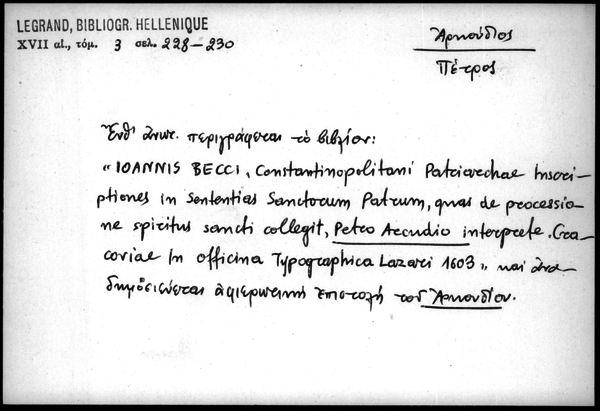 LEGRAND, BIBLIOGR. HELLENIQUE
XVII αἰ., τόμ. 3 σελ. 228-230
Ἀρκούδιος
Πέτρος
Ἔνθ' ἀνωτ. περιγράφεται τὸ βιβλίον:
"IOANNIS BECCI, Constantinopolitani Patriarchae Inscri-
ptiones in Sententias Sanctorum Patrum, quas de processio-
ne spiritus sancti collegit, Petro Arcudio interprete. Cra-
coviae In officina Typographica Lazari 1603" καὶ ἀνα-
δημοσιεύεται ἀφιερωτικὴ ἐπιστολὴ τοῦ Ἀρκουδίου.